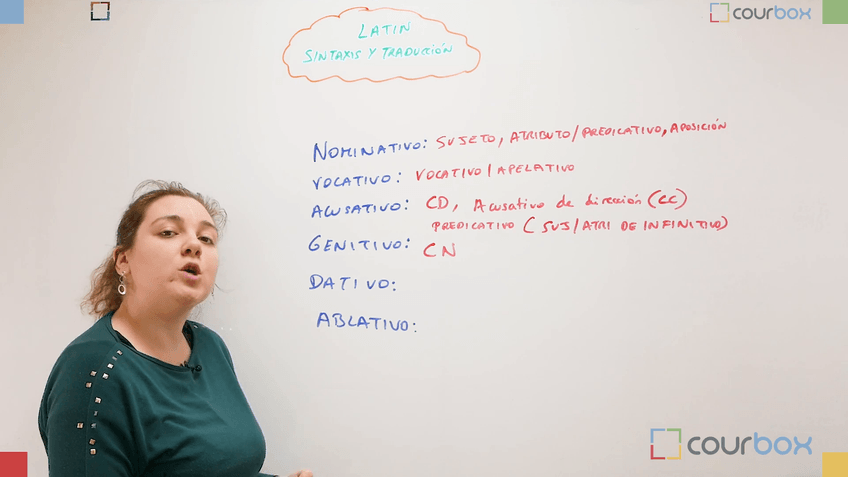 courbox
LATIN
SINTAXIS Y TRADUCCIÓN
NOMINATIVO: SUJETO, ATRIBUTO/PREDICATIVO, APOSICIÓN
VOCATIVO: VOCATIVO/APELATIVO
ACUSATIVO: CD, Acusativo de dirección (CC)
PREDICATIVO (SUJ/ATRI DE INFINITIVO)
GENITIVO: CN
DATIVO:
ABLATIVO:
courbox